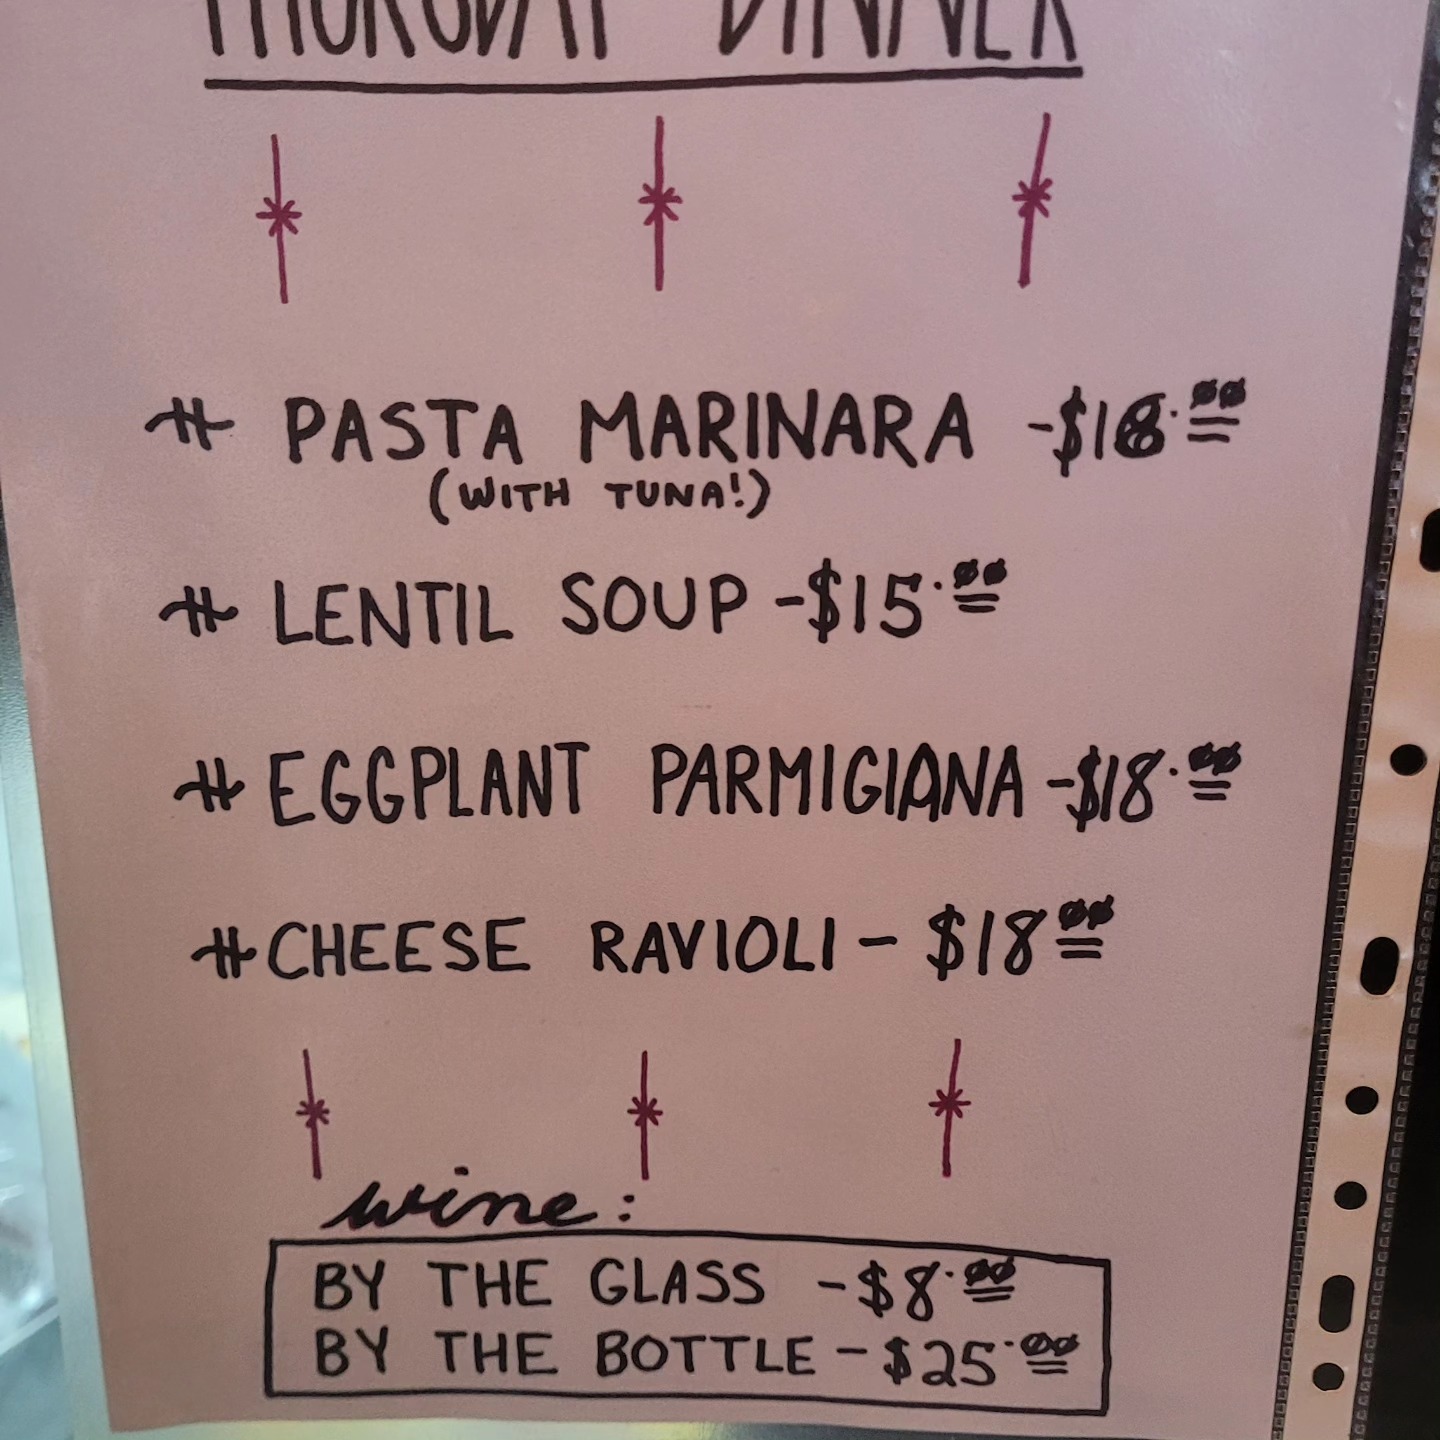 THURSDAY DINNER
# PASTA MARINARA -$18.00
(WITH TUNA!)
# LENTIL SOUP -$15.00
# EGGPLANT PARMIGIANA -$18.00
# CHEESE RAVIOLI - $18 00
wine:
BY THE GLASS -$8.00
BY THE BOTTLE - $25.00